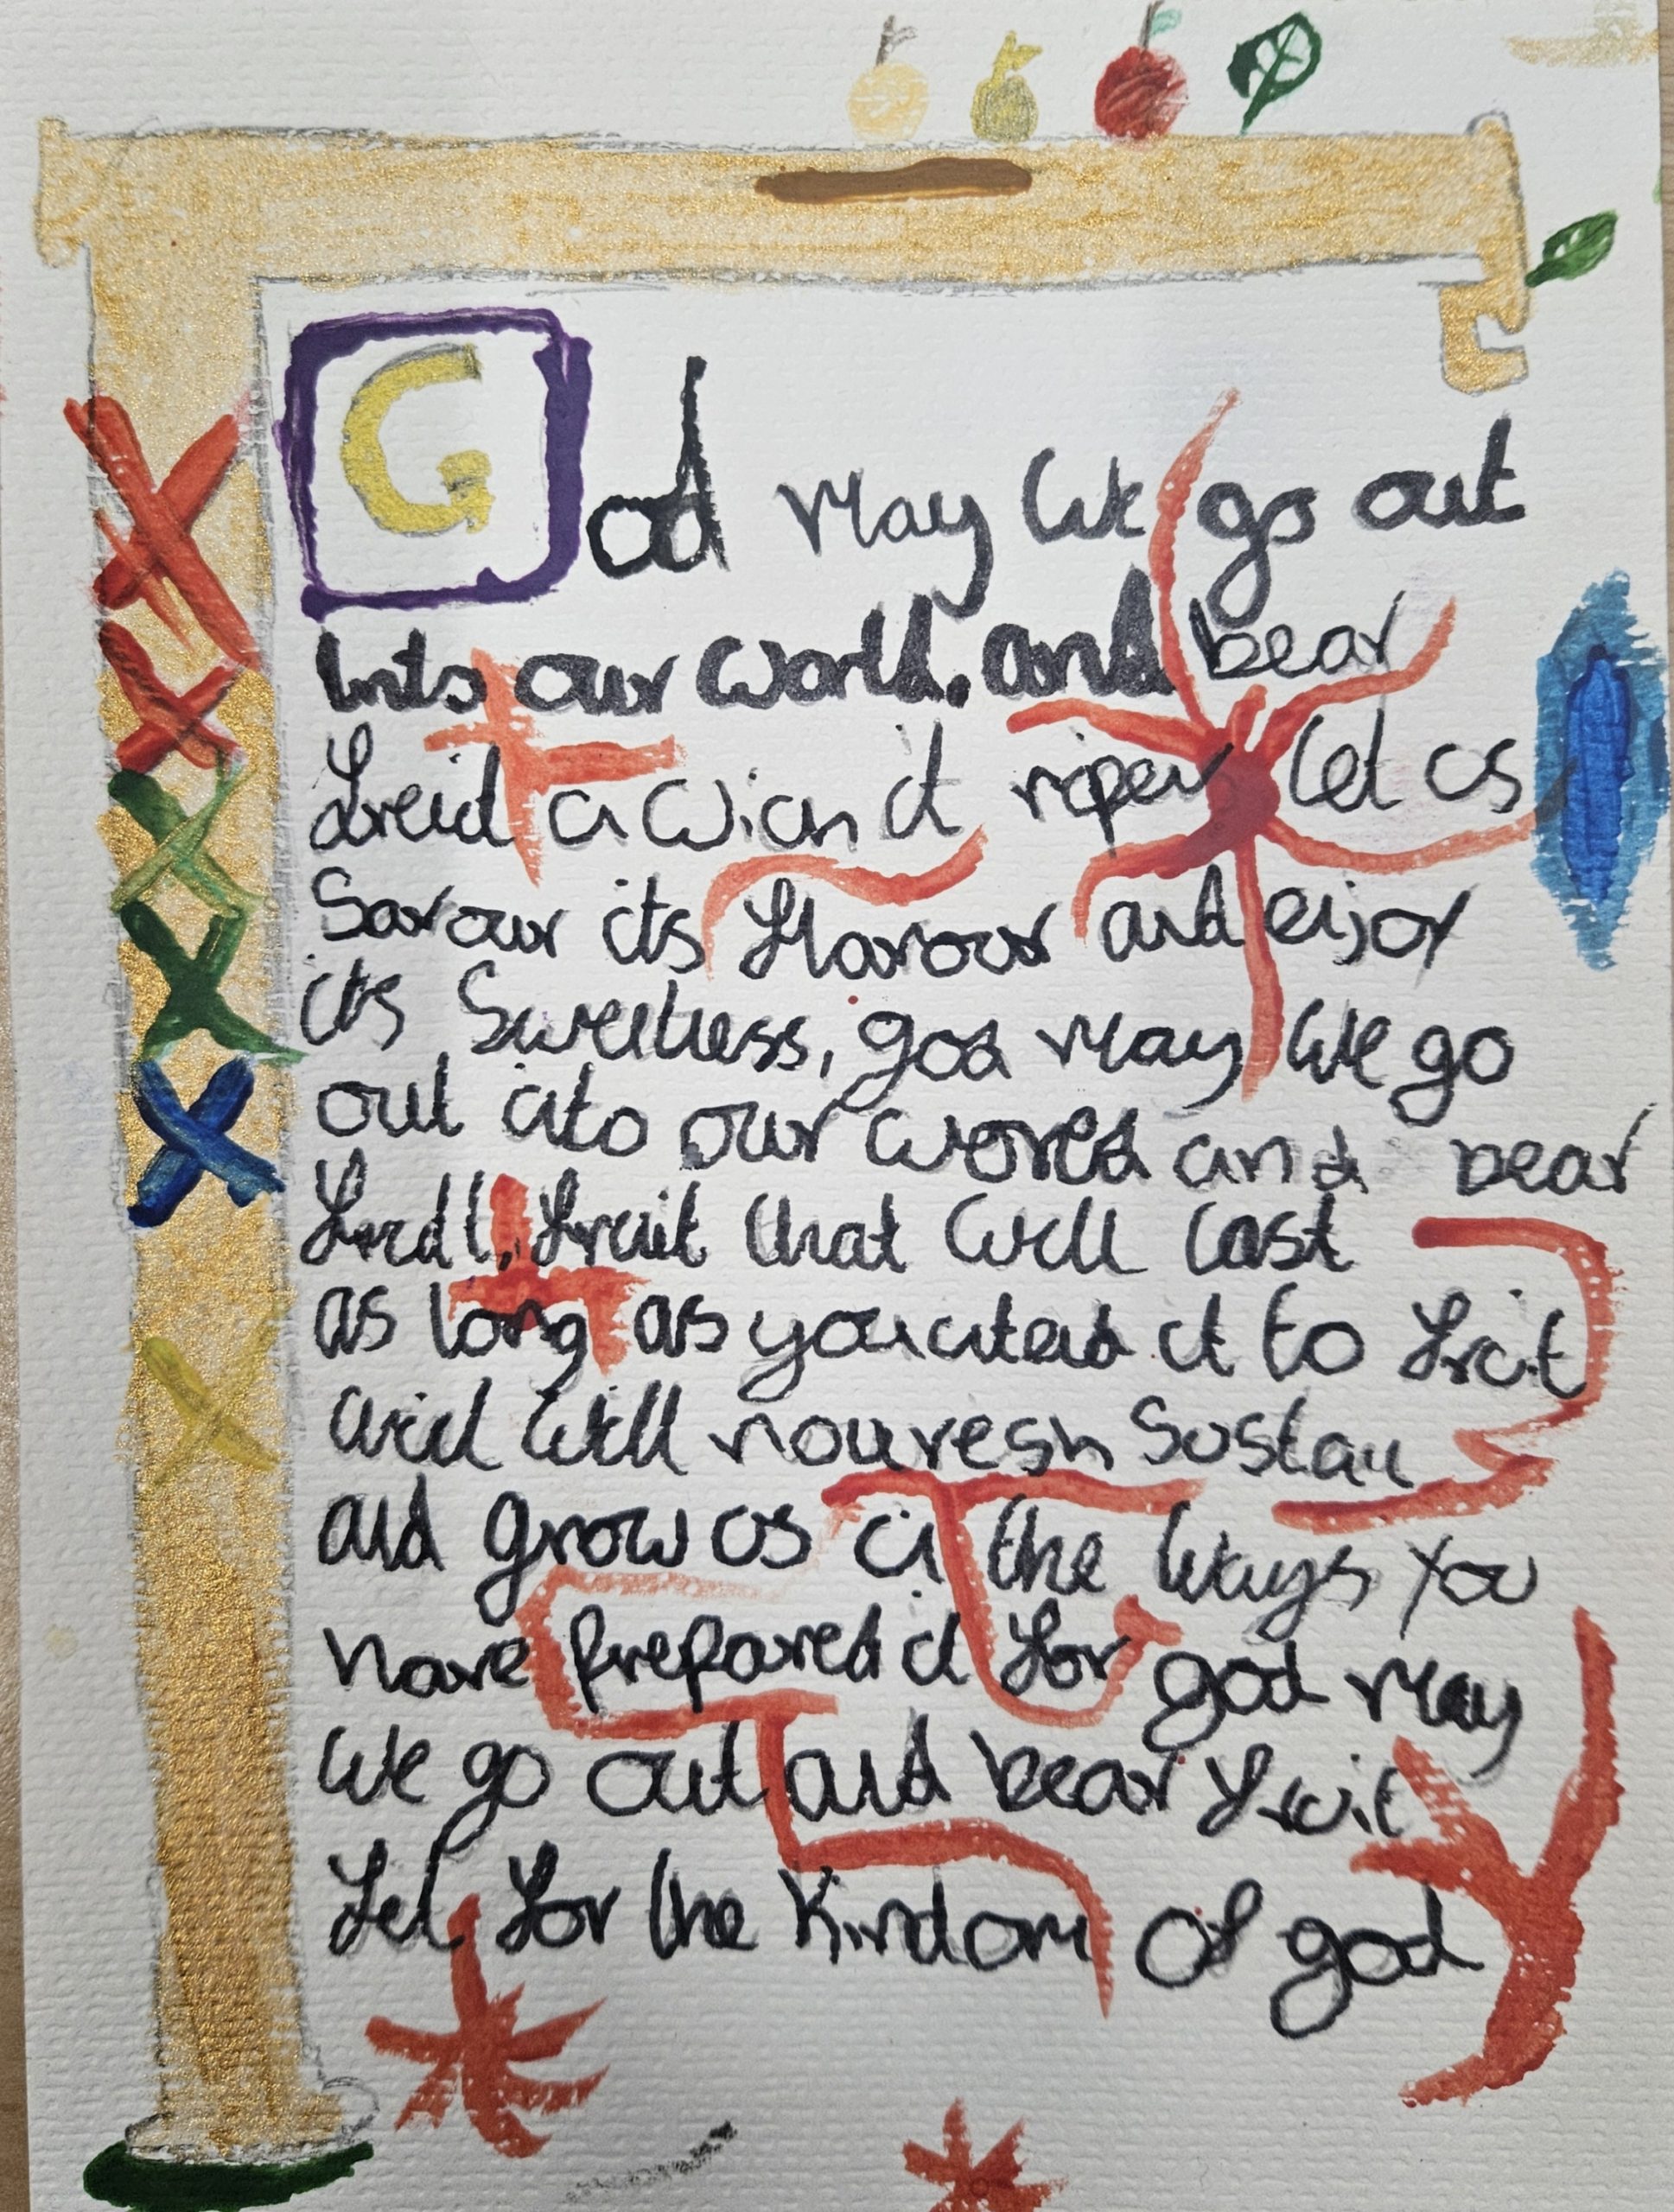 God may we go out
into our world, and bear
fruit awian it ripen let us
Savour its flavour and enjoy
its Sweetness, god may we go
out into our world and bear
fruit that will last
as long as you intend it to fruit
and will nouresh Sustain
and grow us in the ways you
have prepared it for god may
we go out and bear fruit
fit for the Kindom of god